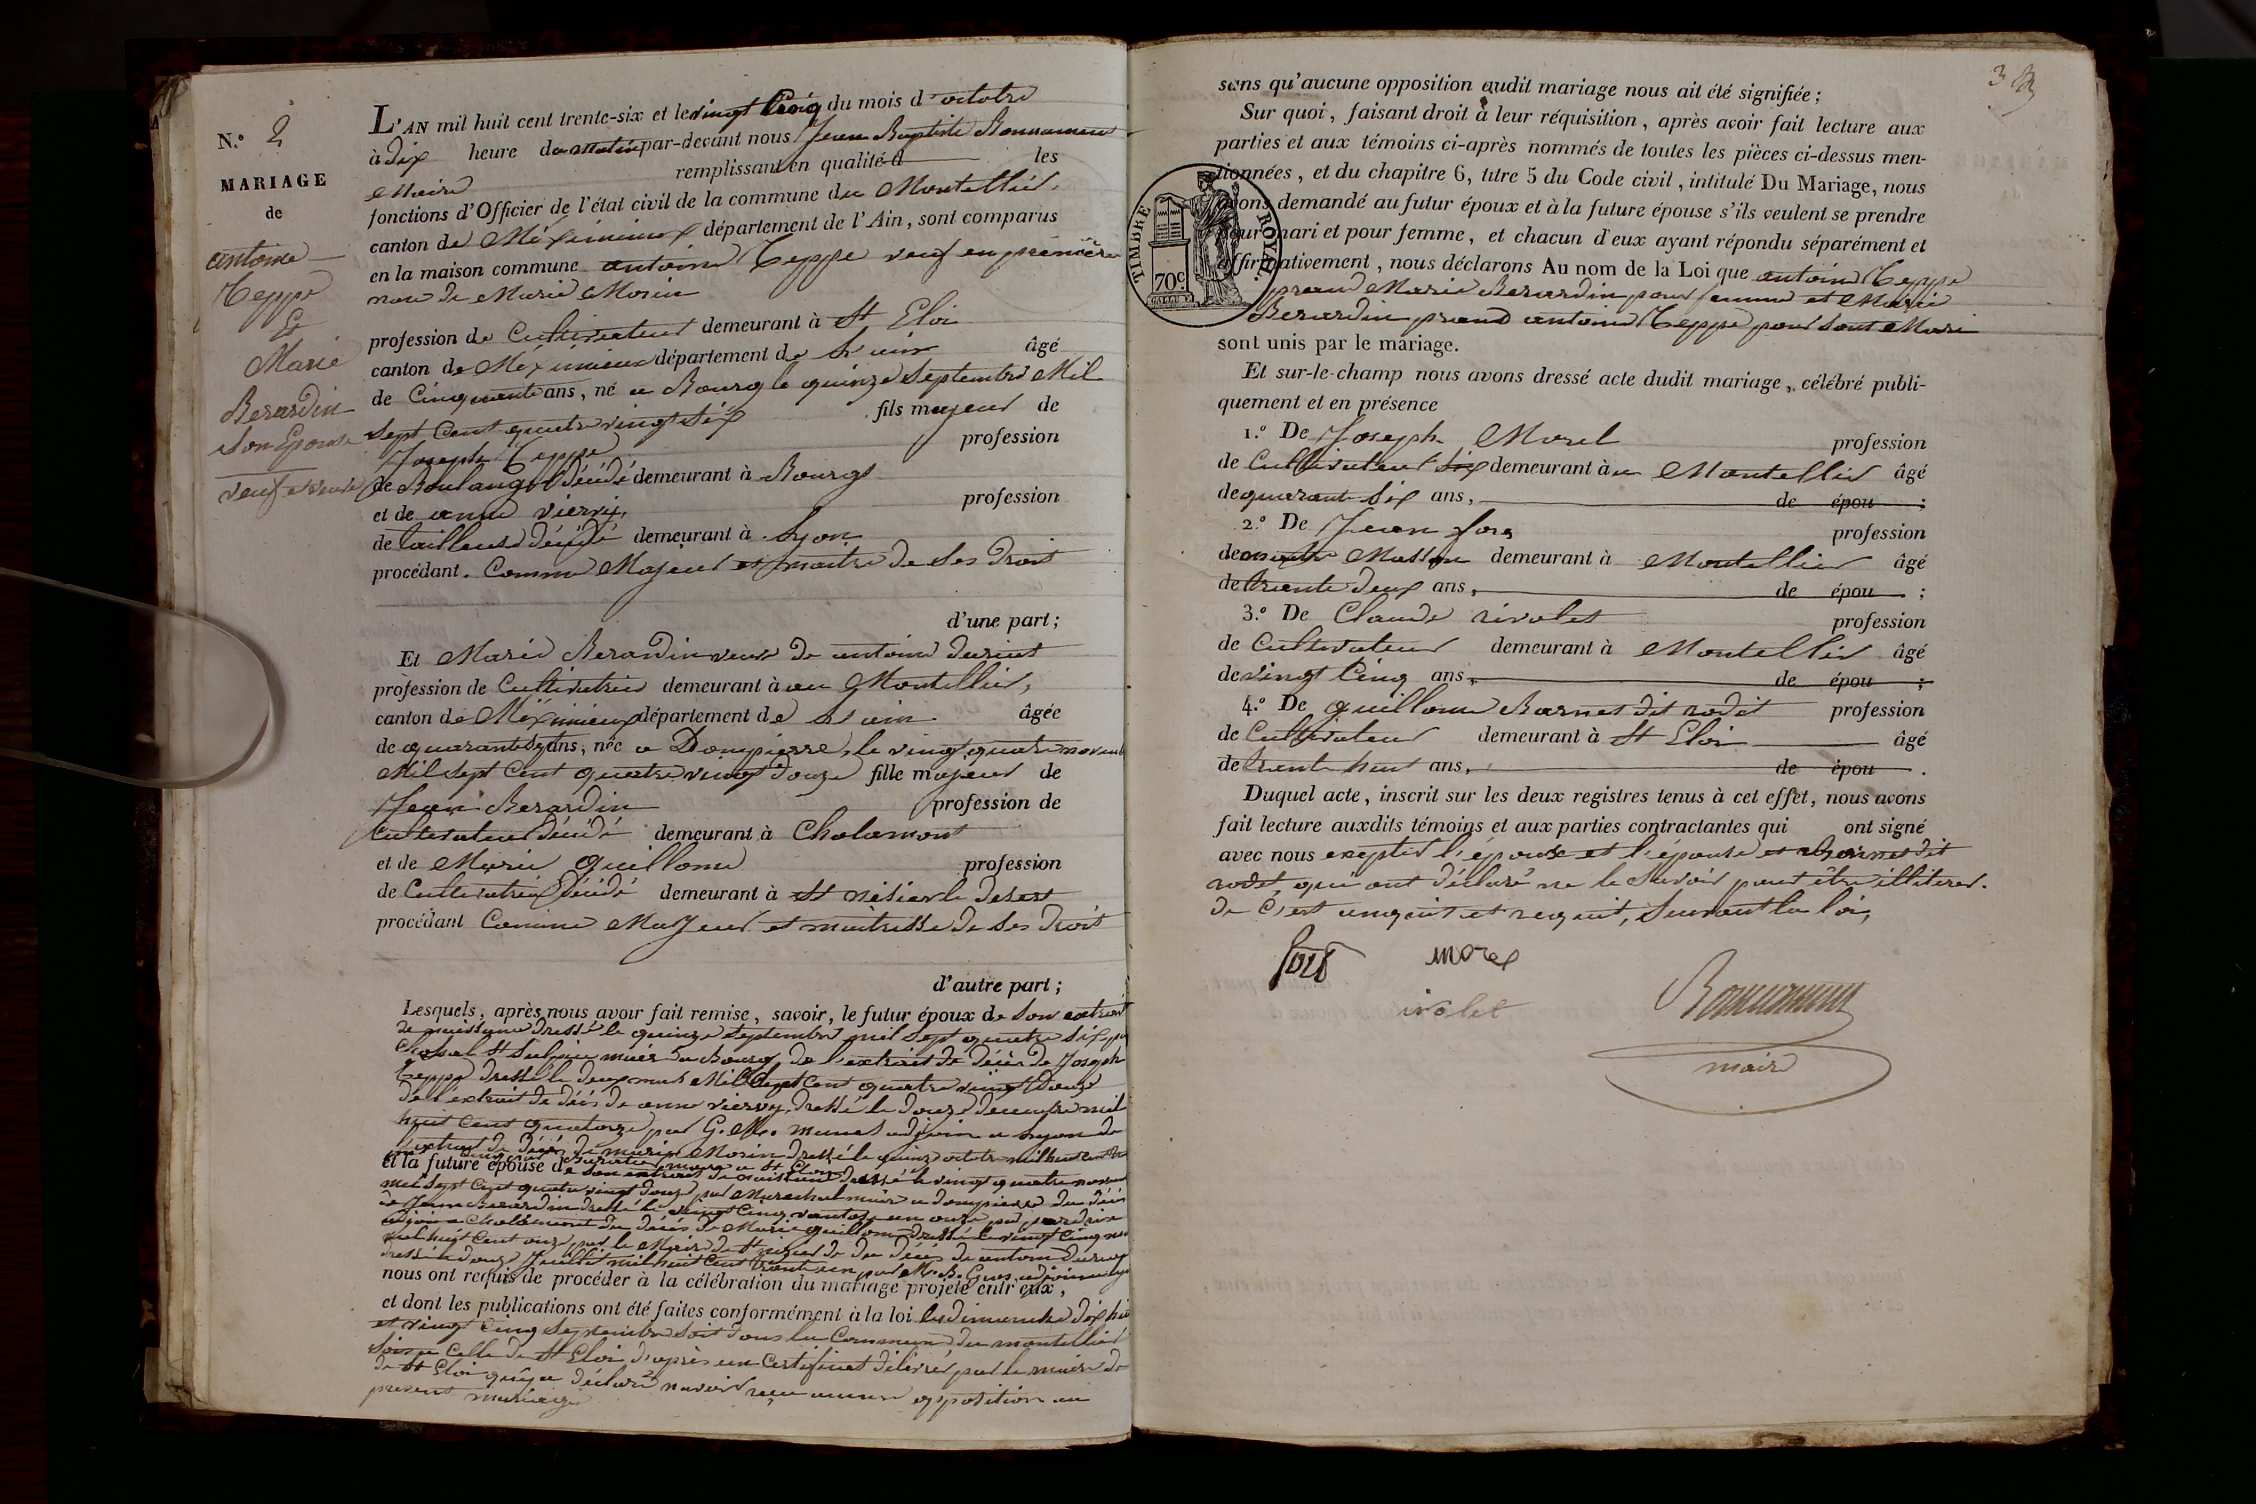 N.° 2
MARIAGE
de
antoine
Teppe
Et
Marie
Berardin
son Epouse
veuf et veuve
L'AN mil huit cent trente-six et le vingt Cinq du mois d'octobre
à dix heure du matin par-devant nous Jean Baptiste Bonnamour
Maire remplissant en qualité d les
fonctions d'Officier de l'état civil de la commune du Montellier,
canton de Méximieux département de l'Ain, sont comparus
en la maison commune antoine Teppe veuf en première
de Marie Morin
profession de Cultivateur demeurant à St Eloi
canton de Méximieux département de L'ain âgé
de Cinquante ans, né a Bourg le quinze Septembre Mil
sept Cent quatre vingt Six fils majeur de
Joseph Teppe profession
de Boulanger décédé demeurant à Bourg
et de anne viervy, profession
de tailleuse décédé demeurant à Lyon
procédant Comme Majeur et maitre de Ses Droit
d'une part;
Et Marie Berardin veuve de antoine
profession de Cultivatrice demeurant à au Montellier,
canton de Méximieux département de L'ain âgée
de quarante ans, née a Dompierre, le vingt quatre
Mil Sept Cent quatre vingt Douze fille majeur de
Jean Berardin profession de
Cultivateur décédé demeurant à Chalamont
et de Marie guillome profession
de Cultivatrice décédé demeurant à St nisier le desert
procédant Comme Majeur et maitresse de Ses Droit
d'autre part;
Lesquels, après nous avoir fait remise, savoir, le futur époux de Son extrait
de naissance dressé le quinze Septembre mil Sept quatre Six
St Sulpice maire a Bourg de l'extrait de décès de Joseph
Teppe dressé le deux mars Mil Sept Cent quatre vingt Douze
de l'extrait de décès de anne viervy, dressé le douze decembre mil
huit Cent quatorze par adjoint a Lyon de
l'extrait de décès de marie Morin dressé le quinze octobre mil huit cent
et la future épouse de Son extrait de naissance dressé le vingt quatre
mil Sept Cent quatre vingt douze par Marechal maire a dompierre du décès
de Jean Berardin dressé le vingt Cinq vantose an onze par
adjoint a Chalamont du décès de Marie guillome dressé le vingt Cinq
mil huit Cent onze par le Maire de St nisier du décès de antoine
dressé le douze Juillet mil huit Cent trente un par
nous ont requis de procéder à la célébration du mariage projeté entr'eux,
et dont les publications ont été faites conformément à la loi les dimanche dix huit
et vingt Cinq Septembre Soit dans la Commune du montellier
a Celle de St Eloi d'après un Certificat délivré par le maire de
de St Eloi qui a déclaré n'avoir reçu aucune opposition au
present mariage
sans qu'aucune opposition audit mariage nous ait été signifiée;
Sur quoi, faisant droit à leur réquisition, après avoir fait lecture aux
parties et aux témoins ci-après nommés de toutes les pièces ci-dessus men-
tionnées, et du chapitre 6, titre 5 du Code civil, intitulé Du Mariage, nous
avons demandé au futur époux et à la future épouse s'ils veulent se prendre
pour mari et pour femme, et chacun d'eux ayant répondu séparément et
affirmativement, nous déclarons Au nom de la Loi que antoine Teppe
prand Marie Berardin pour femme et Marie
Berardin prand antoine Teppe pour Sont Mari
sont unis par le mariage.
TIMBRE ROYAL
70c
Et sur-le-champ nous avons dressé acte dudit mariage, célébré publi-
quement et en présence
1.° De Joseph Morel profession
de Cultivateur demeurant à au Montellier âgé
de quarante Six ans, de épou ;
2.° De Jean fors profession
de Masson demeurant à Montellier âgé
de trente deux ans, de épou ;
3.° De Claude rivolet profession
de Cultivateur demeurant à Montellier âgé
de vingt Cinq ans, de épou ;
4.° De guillome Barnet dit rodet profession
de Cultivateur demeurant à St Eloi âgé
de trente huit ans, de épou .
Duquel acte, inscrit sur les deux registres tenus à cet effet, nous avons
fait lecture auxdits témoins et aux parties contractantes qui ont signé
avec nous exepter l'époux et l'épouse et Barnet dit
rodet, qui ont déclaré ne le Savoir pour être illiterer.
de C'est enquit et requit, Suivant la loi,
morel
Bonnamour
maire